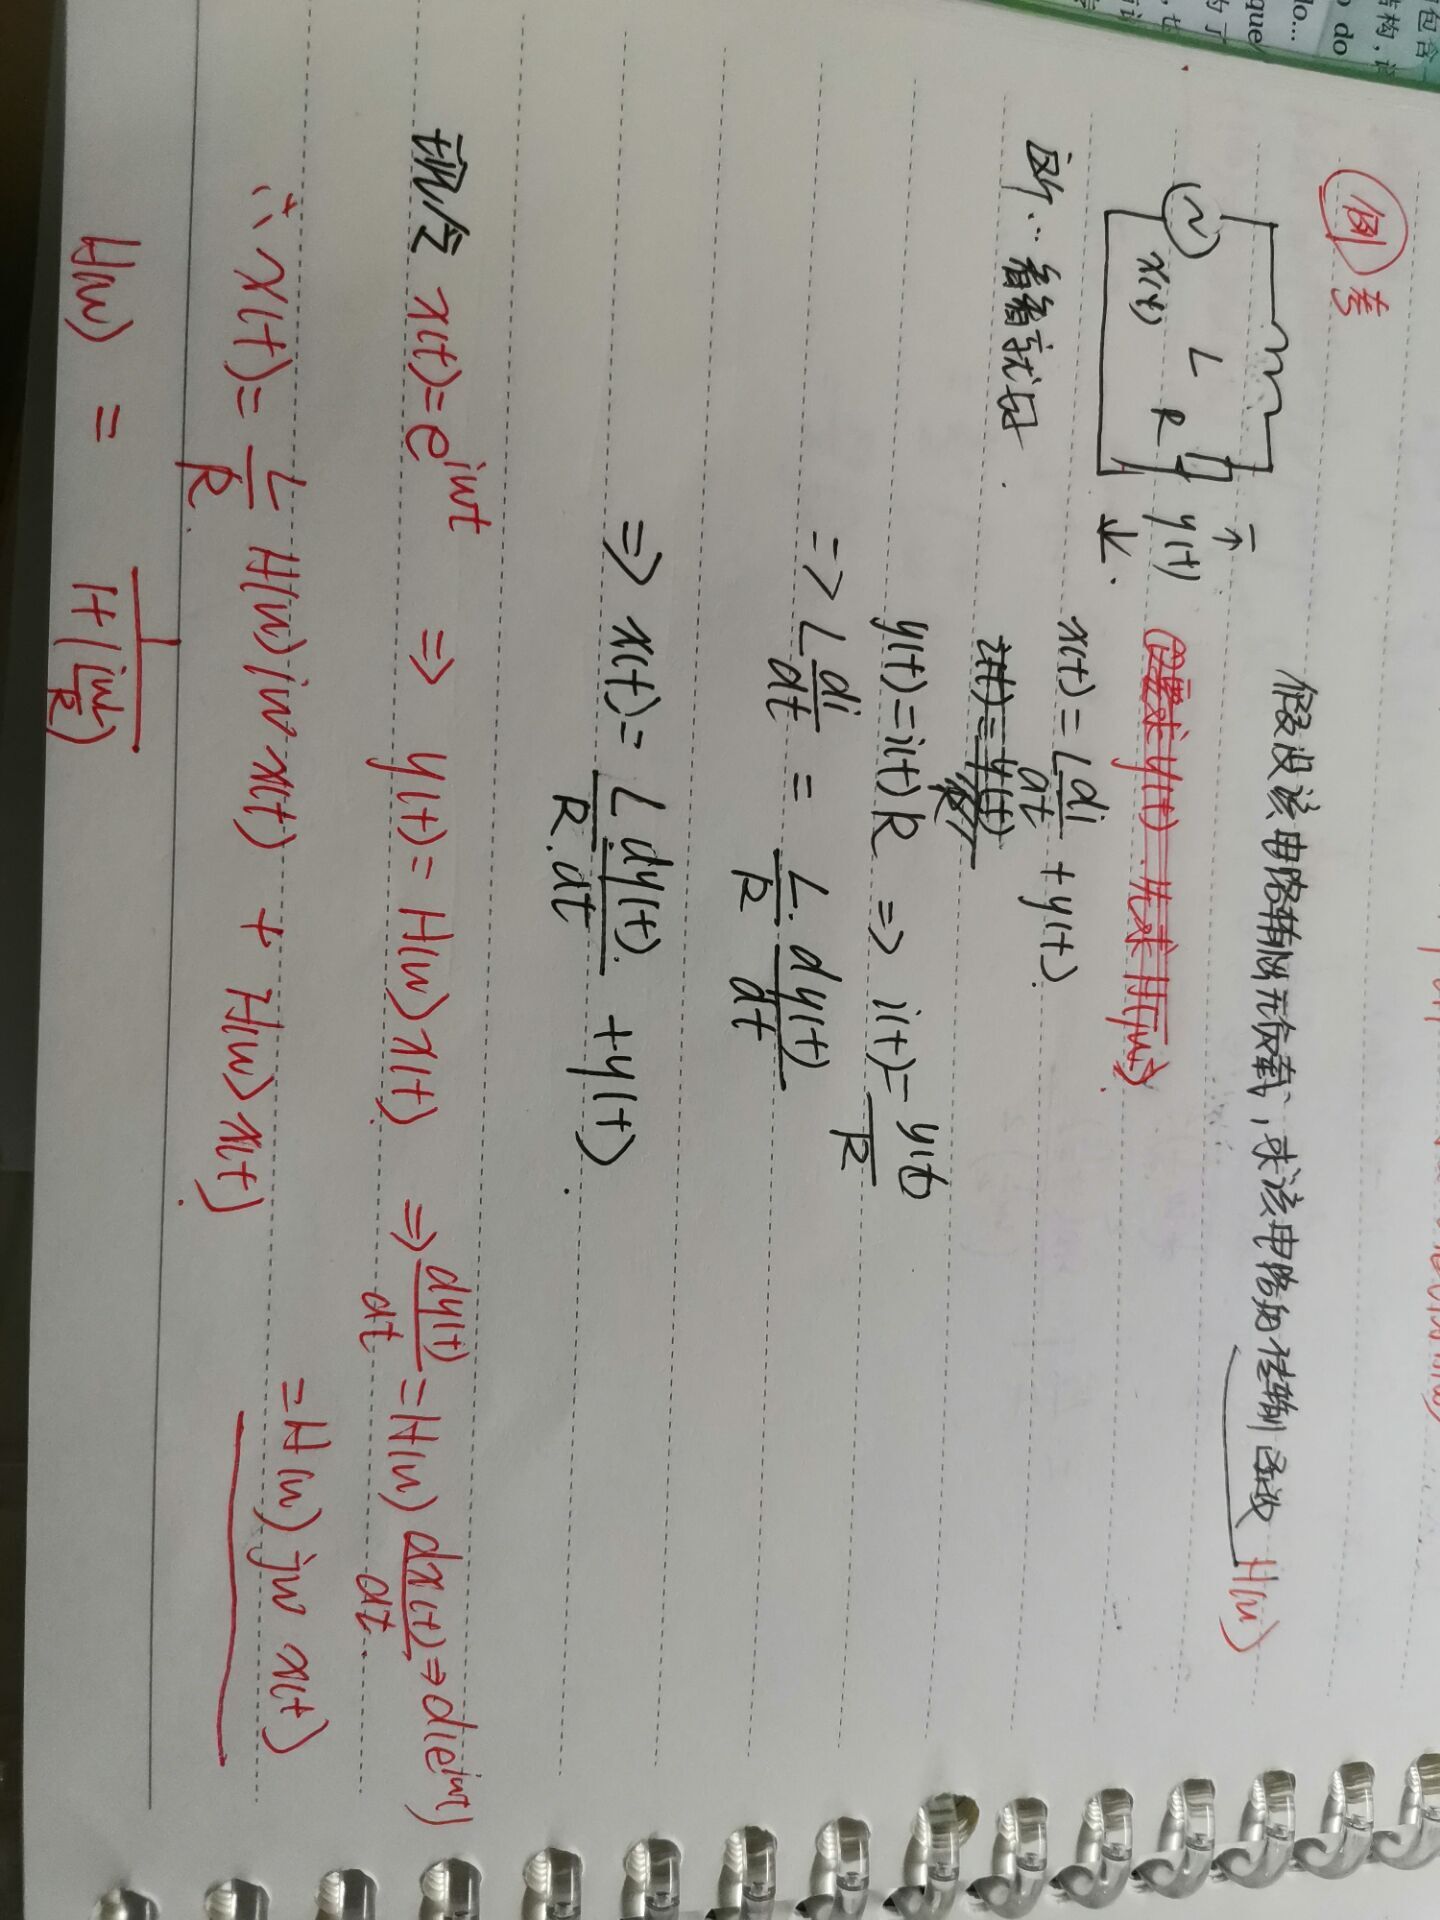 包含
结构,
o do
lo...
que
为了
例 考
假设该电路输出无负载,求该电路的传输函数 H(w)
L
R
x(t)
y(t)
仅要求y(t).先求H(jw).
这个…看看就好.
x(t) = L di/dt + y(t).
i(t) = y(t)/R
y(t)=i(t)R => i(t)= y(t)/R
=> L di/dt = L/R · dy(t)/dt
=> x(t)= L/R · dy(t)/dt + y(t).
现令 x(t)=e^{jwt} => y(t)= H(w) x(t). => dy(t)/dt = H(w) dx(t)/dt. => d(e^{jwt})
= H(w) jw x(t)
∴ x(t)= L/R H(w) jw x(t) + H(w) x(t).
H(w) = 1/(1+(jwL/R))